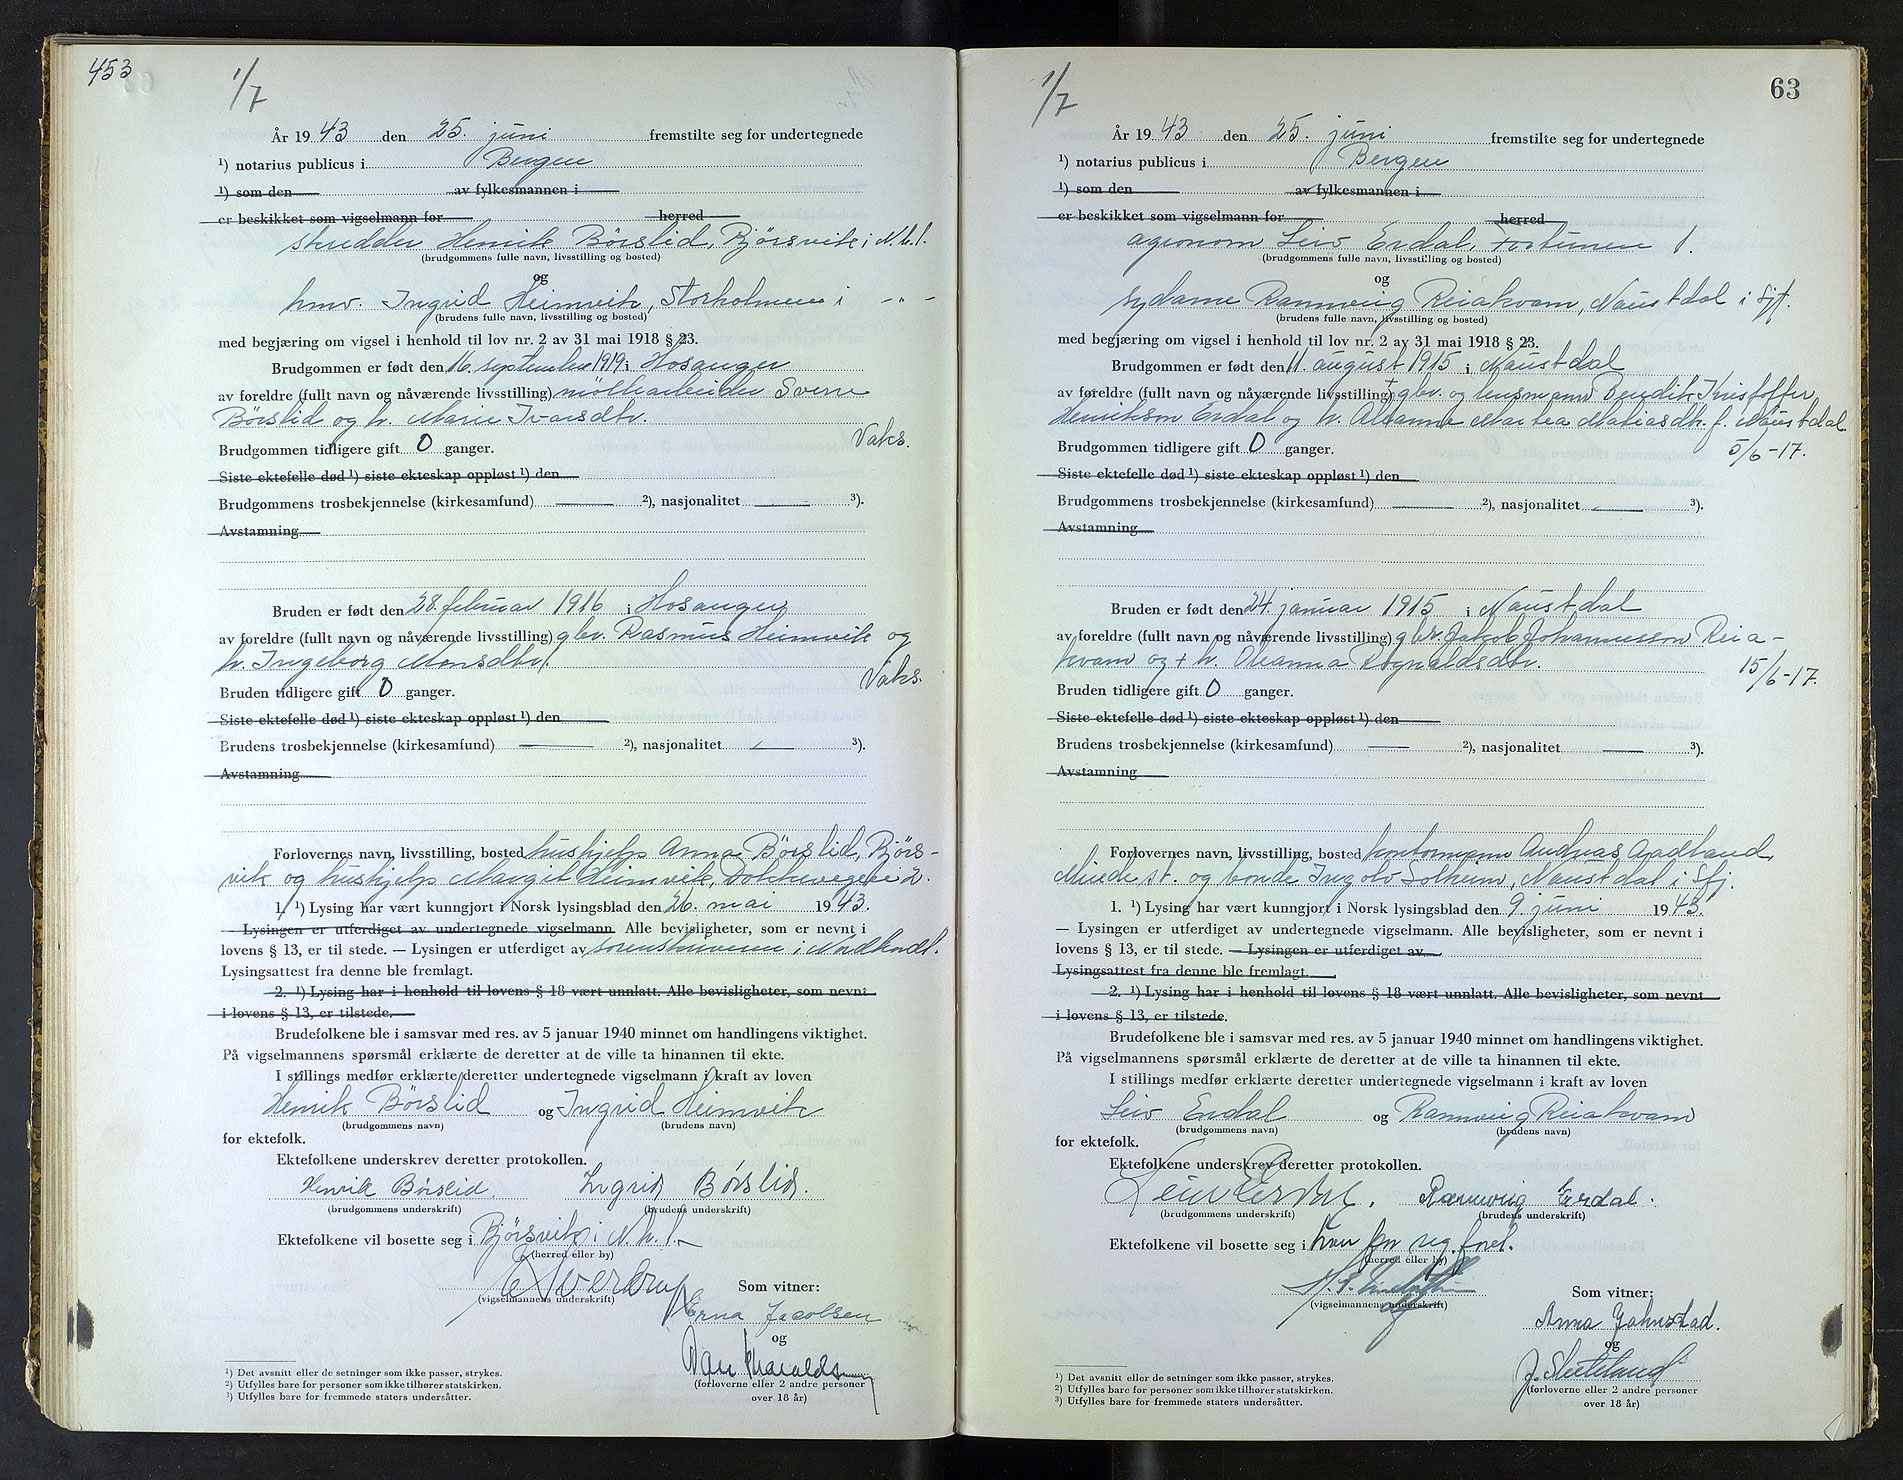 453
1/7
År 1943 den 25. juni fremstilte seg for undertegnede
¹) notarius publicus i Bergen
¹) som den av fylkesmannen i
er beskikket som vigselmann for herred
skredder Henrik Börslid, Bjørsvik i N.h.l.
(brudgommens fulle navn, livsstilling og bosted)
og
hmv. Ingrid Heimvik, Storholmen i -"-
(brudens fulle navn, livsstilling og bosted)
med begjæring om vigsel i henhold til lov nr. 2 av 31 mai 1918 § 23.
Brudgommen er født den 16. september 1919 i Hosanger
av foreldre (fullt navn og nåværende livsstilling) møllearbeider Sverre
Börslid og h. Marie Ivarsdtr.
Vaks.
Brudgommen tidligere gift 0 ganger.
Siste ektefelle død ¹) siste ekteskap oppløst ¹) den
Brudgommens trosbekjennelse (kirkesamfund) — ²), nasjonalitet — ³).
Avstamning
Bruden er født den 28. februar 1916 i Hosanger
av foreldre (fullt navn og nåværende livsstilling) gbr. Rasmus Heimvik og
h. Ingeborg Monsdtr.
Vaks.
Bruden tidligere gift 0 ganger.
Siste ektefelle død ¹) siste ekteskap oppløst ¹) den
Brudens trosbekjennelse (kirkesamfund) — ²), nasjonalitet — ³).
Avstamning
Forlovernes navn, livsstilling, bosted hushjelp Anna Börslid, Bjørs-
vik og hushjelp Margit Heimvik, Dokkevegen 2.
1. ¹) Lysing har vært kunngjort i Norsk lysingsblad den 26. mai 1943.
— Lysingen er utferdiget av undertegnede vigselmann. Alle bevisligheter, som er nevnt i
lovens § 13, er til stede. — Lysingen er utferdiget av sorenskriveren i Nordhordl.
Lysingsattest fra denne ble fremlagt.
2. ¹) Lysing har i henhold til lovens § 18 vært unnlatt. Alle bevisligheter, som nevnt
i lovens § 13, er tilstede.
Brudefolkene ble i samsvar med res. av 5 januar 1940 minnet om handlingens viktighet.
På vigselmannens spørsmål erklærte de deretter at de ville ta hinannen til ekte.
I stillings medfør erklærte deretter undertegnede vigselmann i kraft av loven
Henrik Börslid og Ingrid Heimvik
(brudgommens navn) (brudens navn)
for ektefolk.
Ektefolkene underskrev deretter protokollen.
Henrik Børslid. Ingrid Børslid.
(brudgommens underskrift) (brudens underskrift)
Ektefolkene vil bosette seg i Bjørsvik i N.h.l.
(herred eller by)
(vigselmannens underskrift)
Som vitner:
Erna Jacobsen
og
(forloverne eller 2 andre personer
over 18 år)
¹) Det avsnitt eller de setninger som ikke passer, strykes.
²) Utfylles bare for personer som ikke tilhører statskirken.
³) Utfylles bare for fremmede staters undersåtter.
1/7
63
År 1943 den 25. juni fremstilte seg for undertegnede
¹) notarius publicus i Bergen
¹) som den av fylkesmannen i
er beskikket som vigselmann for herred
agronom Leiv Erdal, Fortunen 1.
(brudgommens fulle navn, livsstilling og bosted)
og
sydame Rannveig Reiakvam, Naustdal i Sjf.
(brudens fulle navn, livsstilling og bosted)
med begjæring om vigsel i henhold til lov nr. 2 av 31 mai 1918 § 23.
Brudgommen er født den 11. august 1915 i Naustdal
av foreldre (fullt navn og nåværende livsstilling) + gbr. og lensmann Bendik Kristoffer
Henrikson Erdal og h. Martea Matiasdtr. f. Naustdal
5/6-17.
Brudgommen tidligere gift 0 ganger.
Siste ektefelle død ¹) siste ekteskap oppløst ¹) den
Brudgommens trosbekjennelse (kirkesamfund) — ²), nasjonalitet — ³).
Avstamning
Bruden er født den 24. januar 1915 i Naustdal
av foreldre (fullt navn og nåværende livsstilling) gbr. Jakob Johannesson Reia-
kvam og + h. Oleanna Rognaldsdtr.
15/6-17.
Bruden tidligere gift 0 ganger.
Siste ektefelle død ¹) siste ekteskap oppløst ¹) den
Brudens trosbekjennelse (kirkesamfund) — ²), nasjonalitet — ³).
Avstamning
Forlovernes navn, livsstilling, bosted kontormann Andreas Aadland,
st. og bonde Ingolv Solheim, Naustdal i Sfj.
1. ¹) Lysing har vært kunngjort i Norsk lysingsblad den 9. juni 1943.
— Lysingen er utferdiget av undertegnede vigselmann. Alle bevisligheter, som er nevnt i
lovens § 13, er til stede. — Lysingen er utferdiget av
Lysingsattest fra denne ble fremlagt.
2. ¹) Lysing har i henhold til lovens § 18 vært unnlatt. Alle bevisligheter, som nevnt
i lovens § 13, er tilstede.
Brudefolkene ble i samsvar med res. av 5 januar 1940 minnet om handlingens viktighet.
På vigselmannens spørsmål erklærte de deretter at de ville ta hinannen til ekte.
I stillings medfør erklærte deretter undertegnede vigselmann i kraft av loven
Leiv Erdal og Rannveig Reiakvam
(brudgommens navn) (brudens navn)
for ektefolk.
Ektefolkene underskrev deretter protokollen.
Leiv Erdal. Rannveig Erdal.
(brudgommens underskrift) (brudens underskrift)
Ektefolkene vil bosette seg i hver for seg forel.
(herred eller by)
(vigselmannens underskrift)
Som vitner:
Anna
og
(forloverne eller 2 andre personer
over 18 år)
¹) Det avsnitt eller de setninger som ikke passer, strykes.
²) Utfylles bare for personer som ikke tilhører statskirken.
³) Utfylles bare for fremmede staters undersåtter.